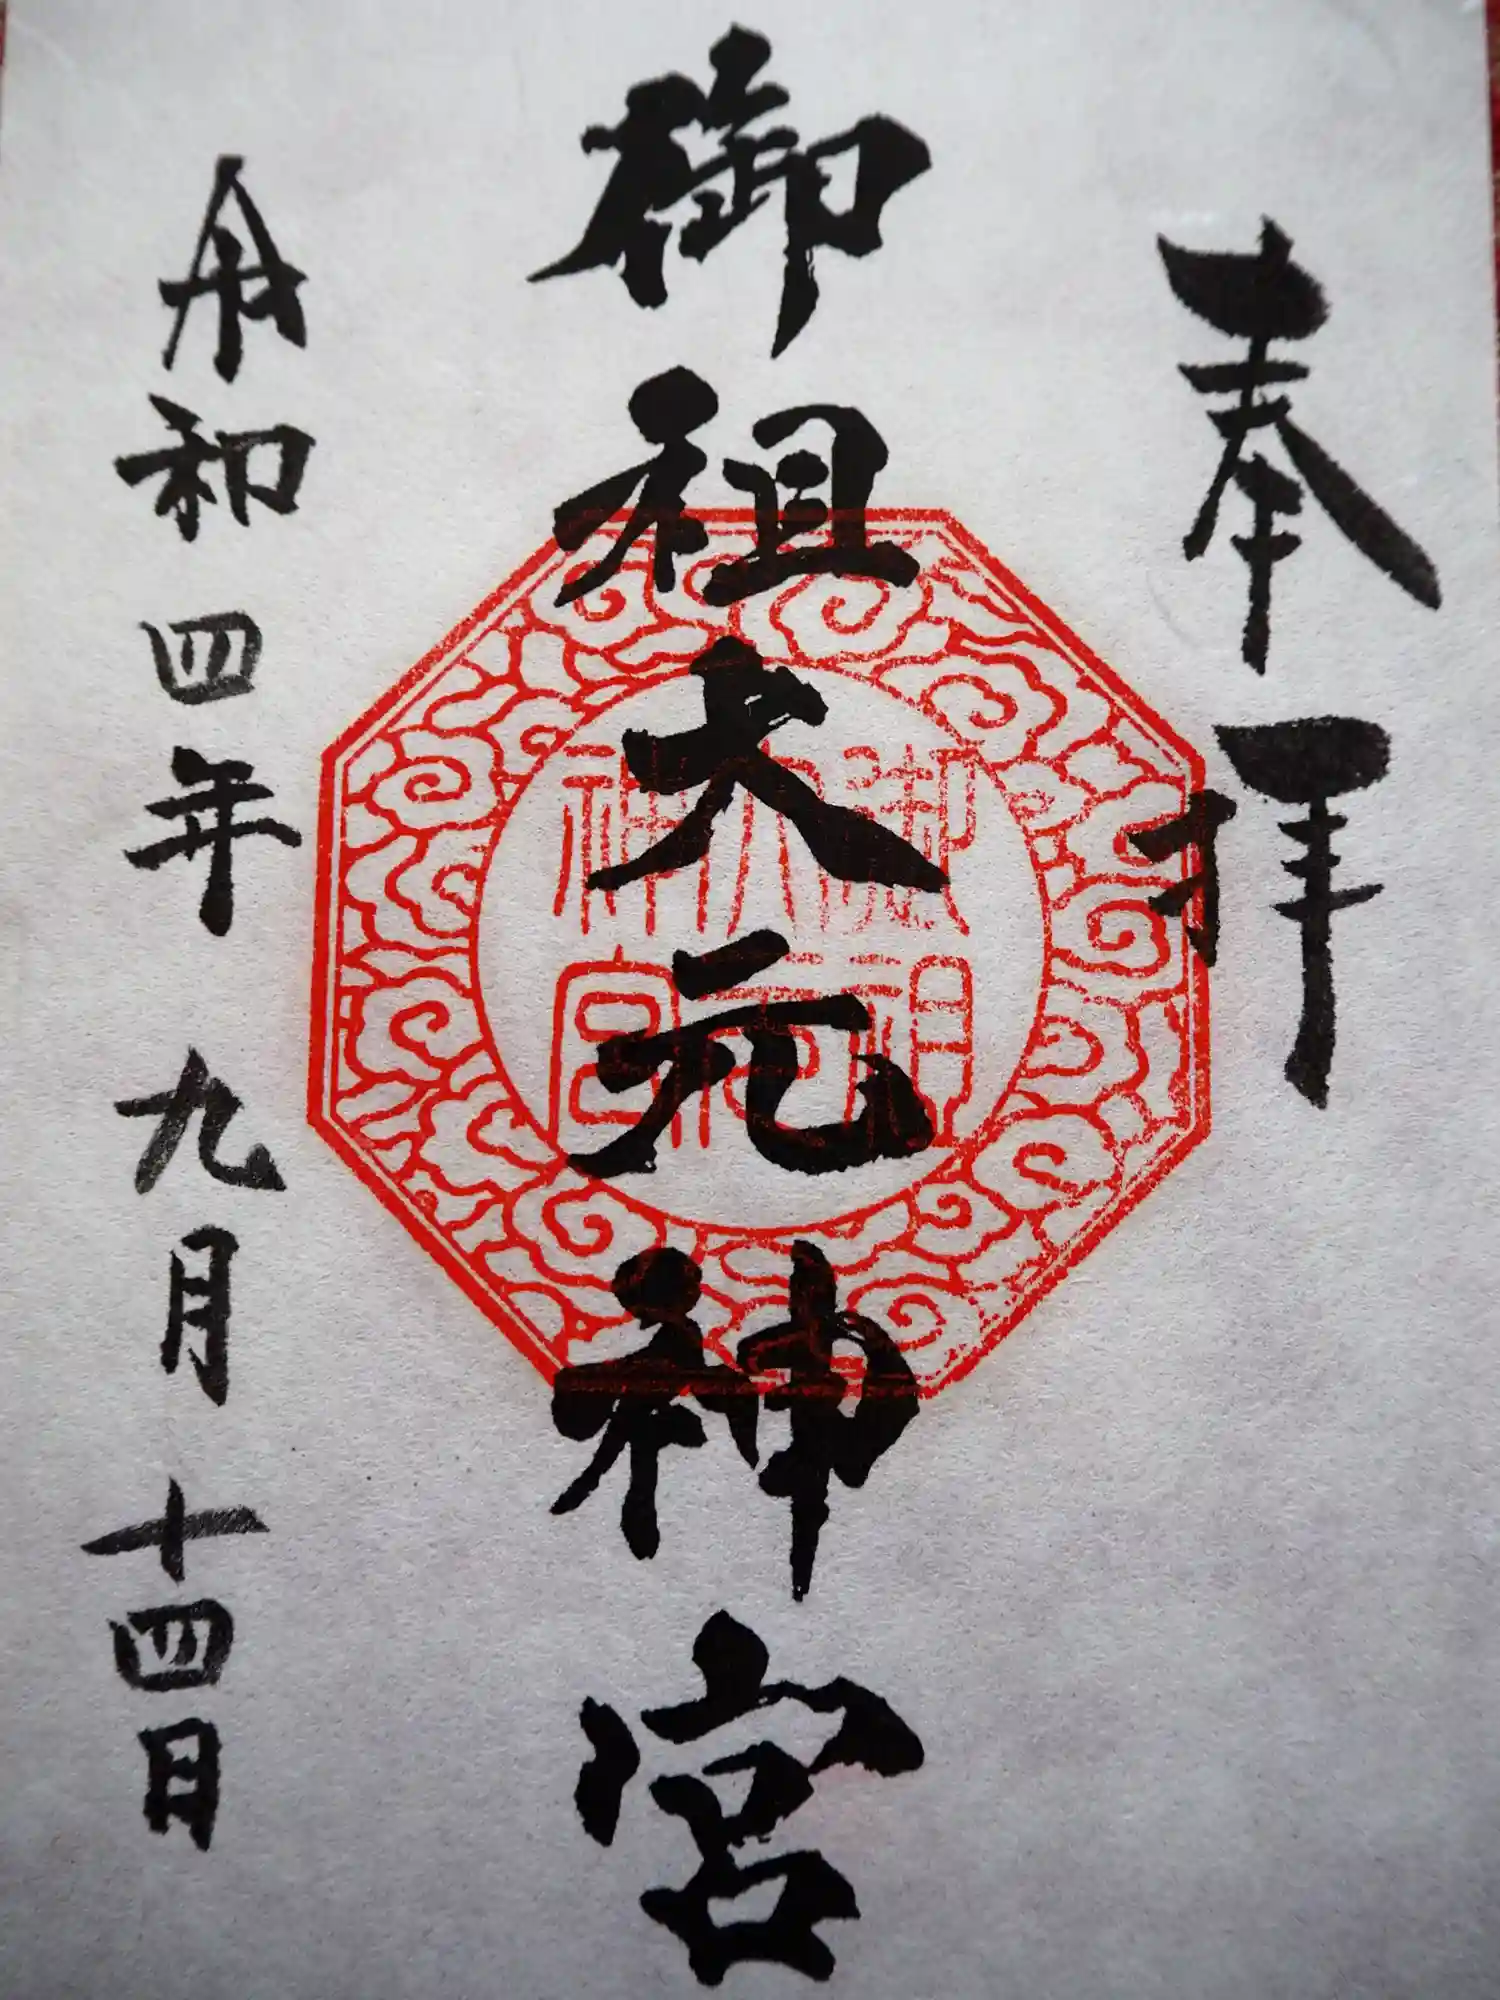 奉拝
御祖大元神宮
御祖
大元
神宮
令和四年九月十四日